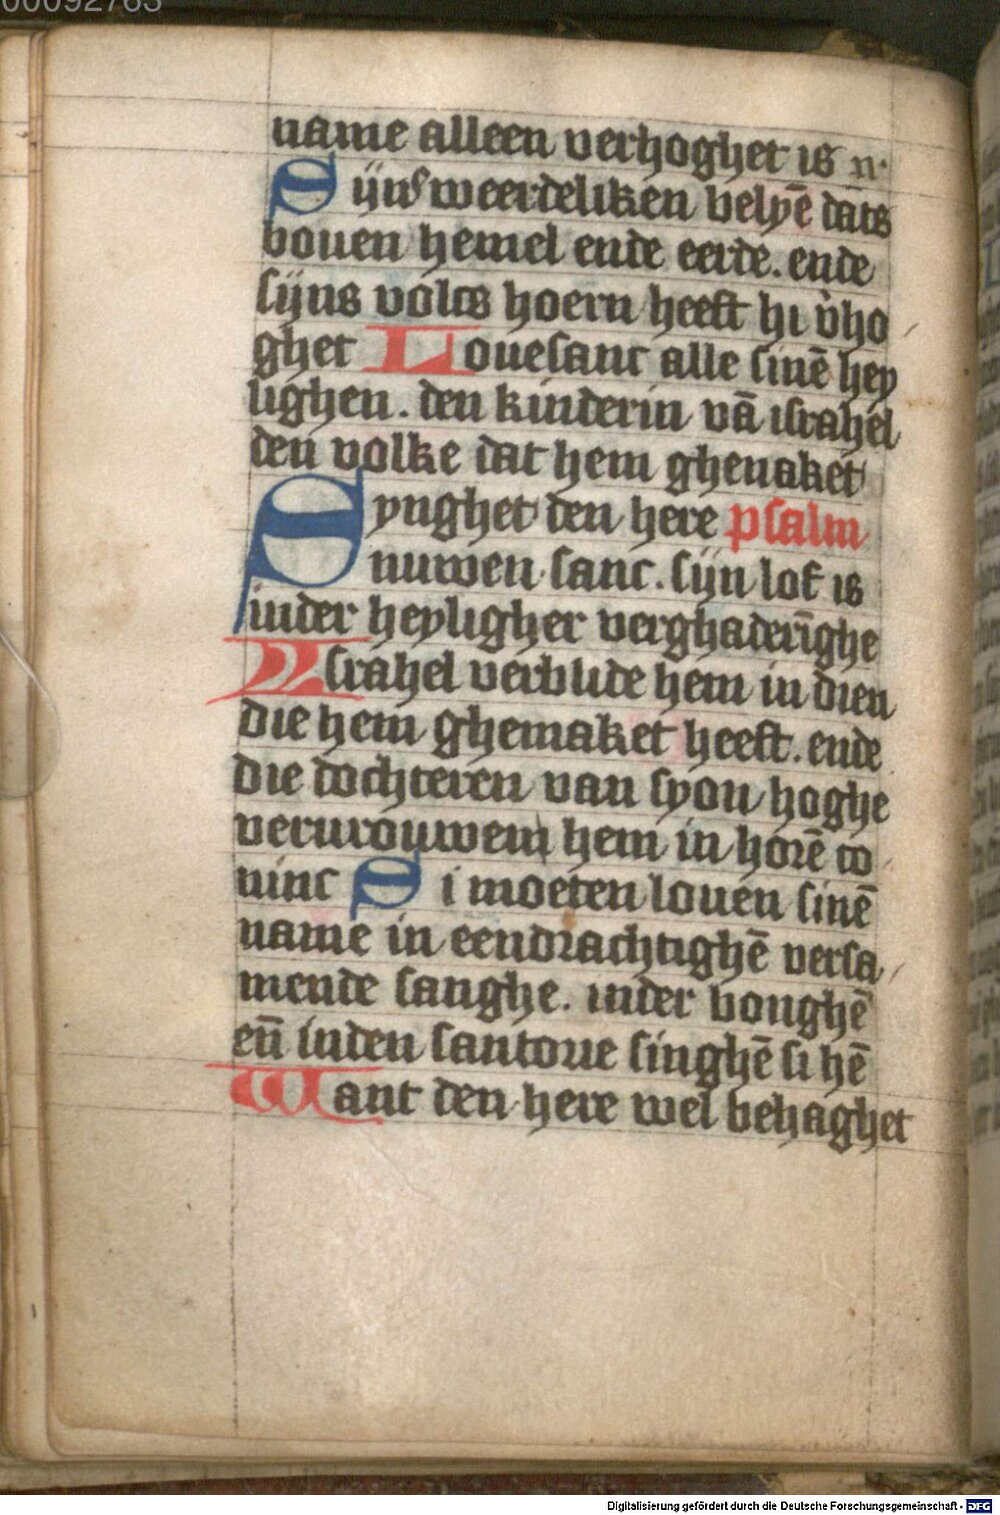 00092763
name alleen verhoghet is n·
Sijns weerdeliken belyē dats
bouen hemel ende eerde. ende
sijns volcs hoern heeft hi v̉ho
ghet Louesanc alle sinē hey
lighen. den kinderin vā israhel
den volke dat hem ghenaket
Synghet den here psalm
nuwen sanc. sijn lof is
inder heyligher verghaderīghe
Israhel verblide hem in dien
die hem ghemaket heeft. ende
die dochteren van syon hoghe
vervrouwem hem in horē co
ninc Si moeten louen sinē
name in eendrachtighē versa
mende sanghe. inder bonghē
en̄ inden santorie singhē si hē
Want den here wel behaghet
Digitalisierung gefördert durch die Deutsche Forschungsgemeinschaft - DFG